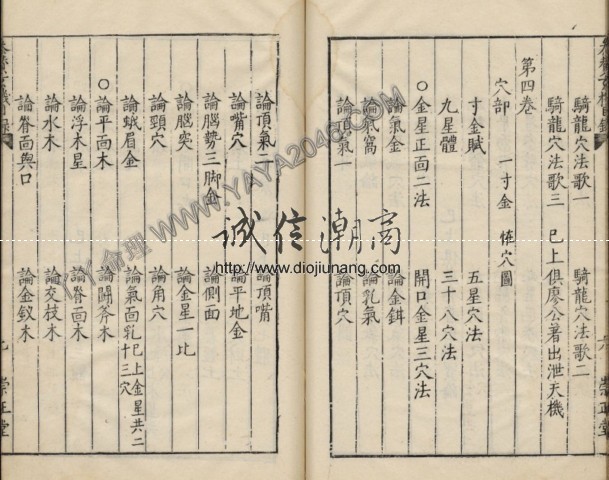 騎龍穴法歌一　騎龍穴法歌二
騎龍穴法歌三　已上俱廖公著出泄天機
第四卷
穴部　一寸金　穴圖
寸金賦　五星穴法
九星體　三十八穴法
○金星正面二法　開口金星三穴法
論氣金　論金鉺
論氣窩　論乳氣
論頂氣一　論頂穴
六　崇正堂
論頂氣二　論頂嘴
論嘴穴　論平地金
論腦勢三脚金　論側面
論腦突　論金星一比
論頸穴　論角穴
論蛾眉金　論氣面乳已上金星共二十三穴
○論平面木　論開斧木
論浮木星　論脊面木
論水木　論交枝木
論脊面與口　論金釵木
七　崇正堂
誠信潮商
http://www.diojiunang.com/
YY命理 WWW.YAYA2046.COM